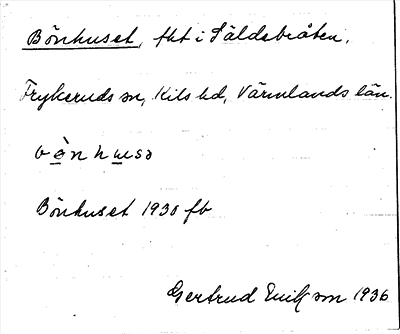 Bönhuset, fht i Säldebråten,
Frykeruds sn, Kils hd, Värmlands län.
Bönhuset 1930 fb
Gertrud Eriksson 1936